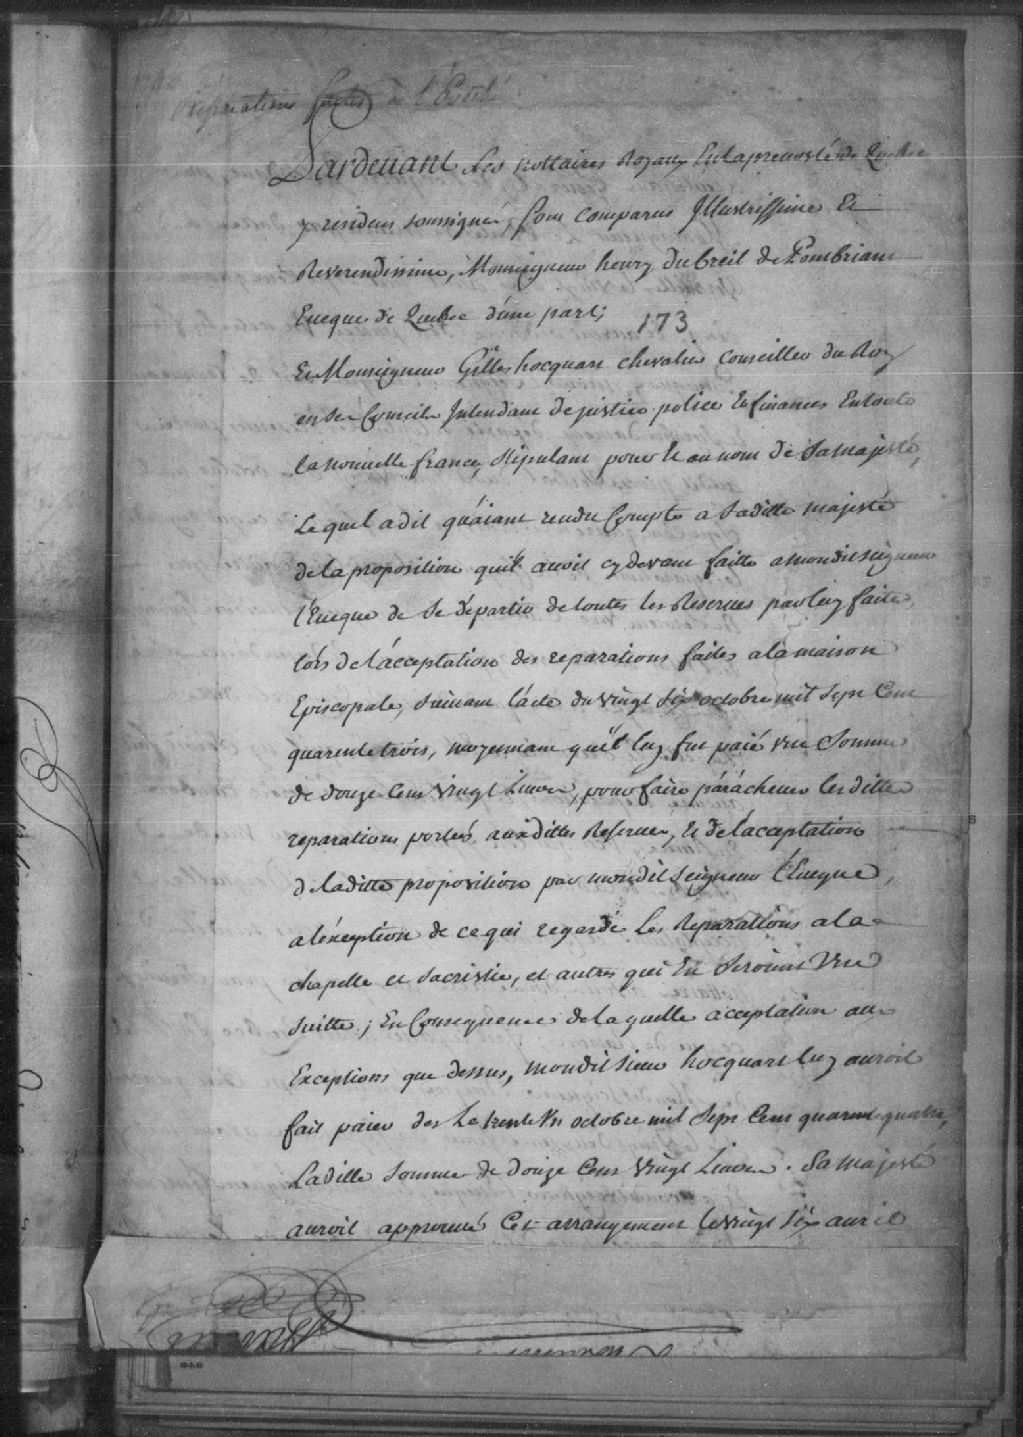 Reparations faites à l'Evêché
Pardevant Les nottaires Royaux En la prevosté de Quebec
y residens soussignés, furent comparus Illustrissime Et
Reverendissime, Monseigneur henry dubreil de Pombriant
Eveque de Quebec d'une part;
173
Et Monseigneur Gilles hocquart chevalier conseiller du Roy
en ses Conseils Intendant de justice police et finances En toute
la nouvelle france, stipulant pour et au nom de Sa majesté,
Lequel a dit qu'aiant rendu Compte a Saditte majesté
de la proposition quil avoit cy devant faitte a mondit seigneur
l'Eveque de se départir de toutes les Reserves par luy faites
lors de l'acceptation des reparations faites a la maison
Episcopale, suivant l'acte du vingt six octobre mil sept Cent
quarente trois, moyennant quil luy fut paié une Somme
de douze Cent vingt Livres, pour faire parachever les dittes
reparations portées auxdittes Reserves, et de l'acceptation
de laditte proposition par mondit Seigneur l'Eveque,
a l'exception de ce qui regarde Les Reparations a la
chapelle et sacristie, et autres qui En seroient Une
suitte; En Consequence de laquelle acceptation aux
Exceptions que dessus, mondit sieur hocquart luy auroit
fait paier des Le trente un octobre mil Sept Cent quarente quatre,
Laditte Somme de douze Cent Vingt Livres. Sa majesté
auroit approuvé Cet arrangement le vingt Six avril